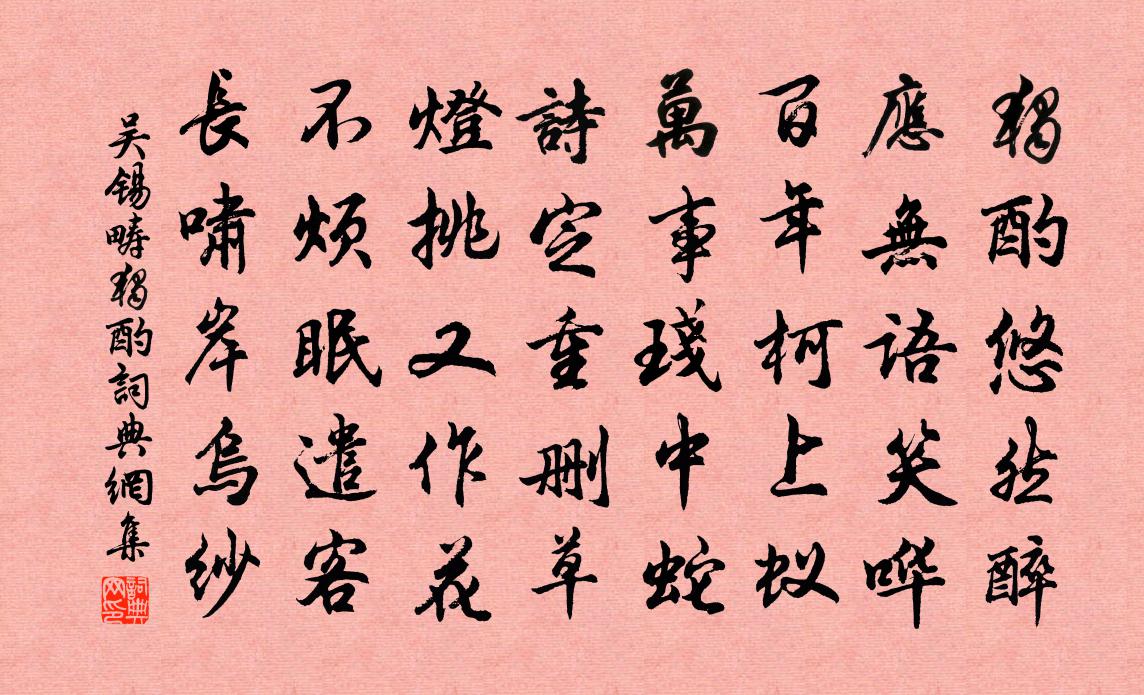 獨酌悠然醉
應無語笑哗
百年柯上蚁
萬事琖中蛇
詩定重刪草
燈挑又作花
不煩眠遣客
長嘯岸烏紗
吴錫畴獨酌詞典網集
詞典网印